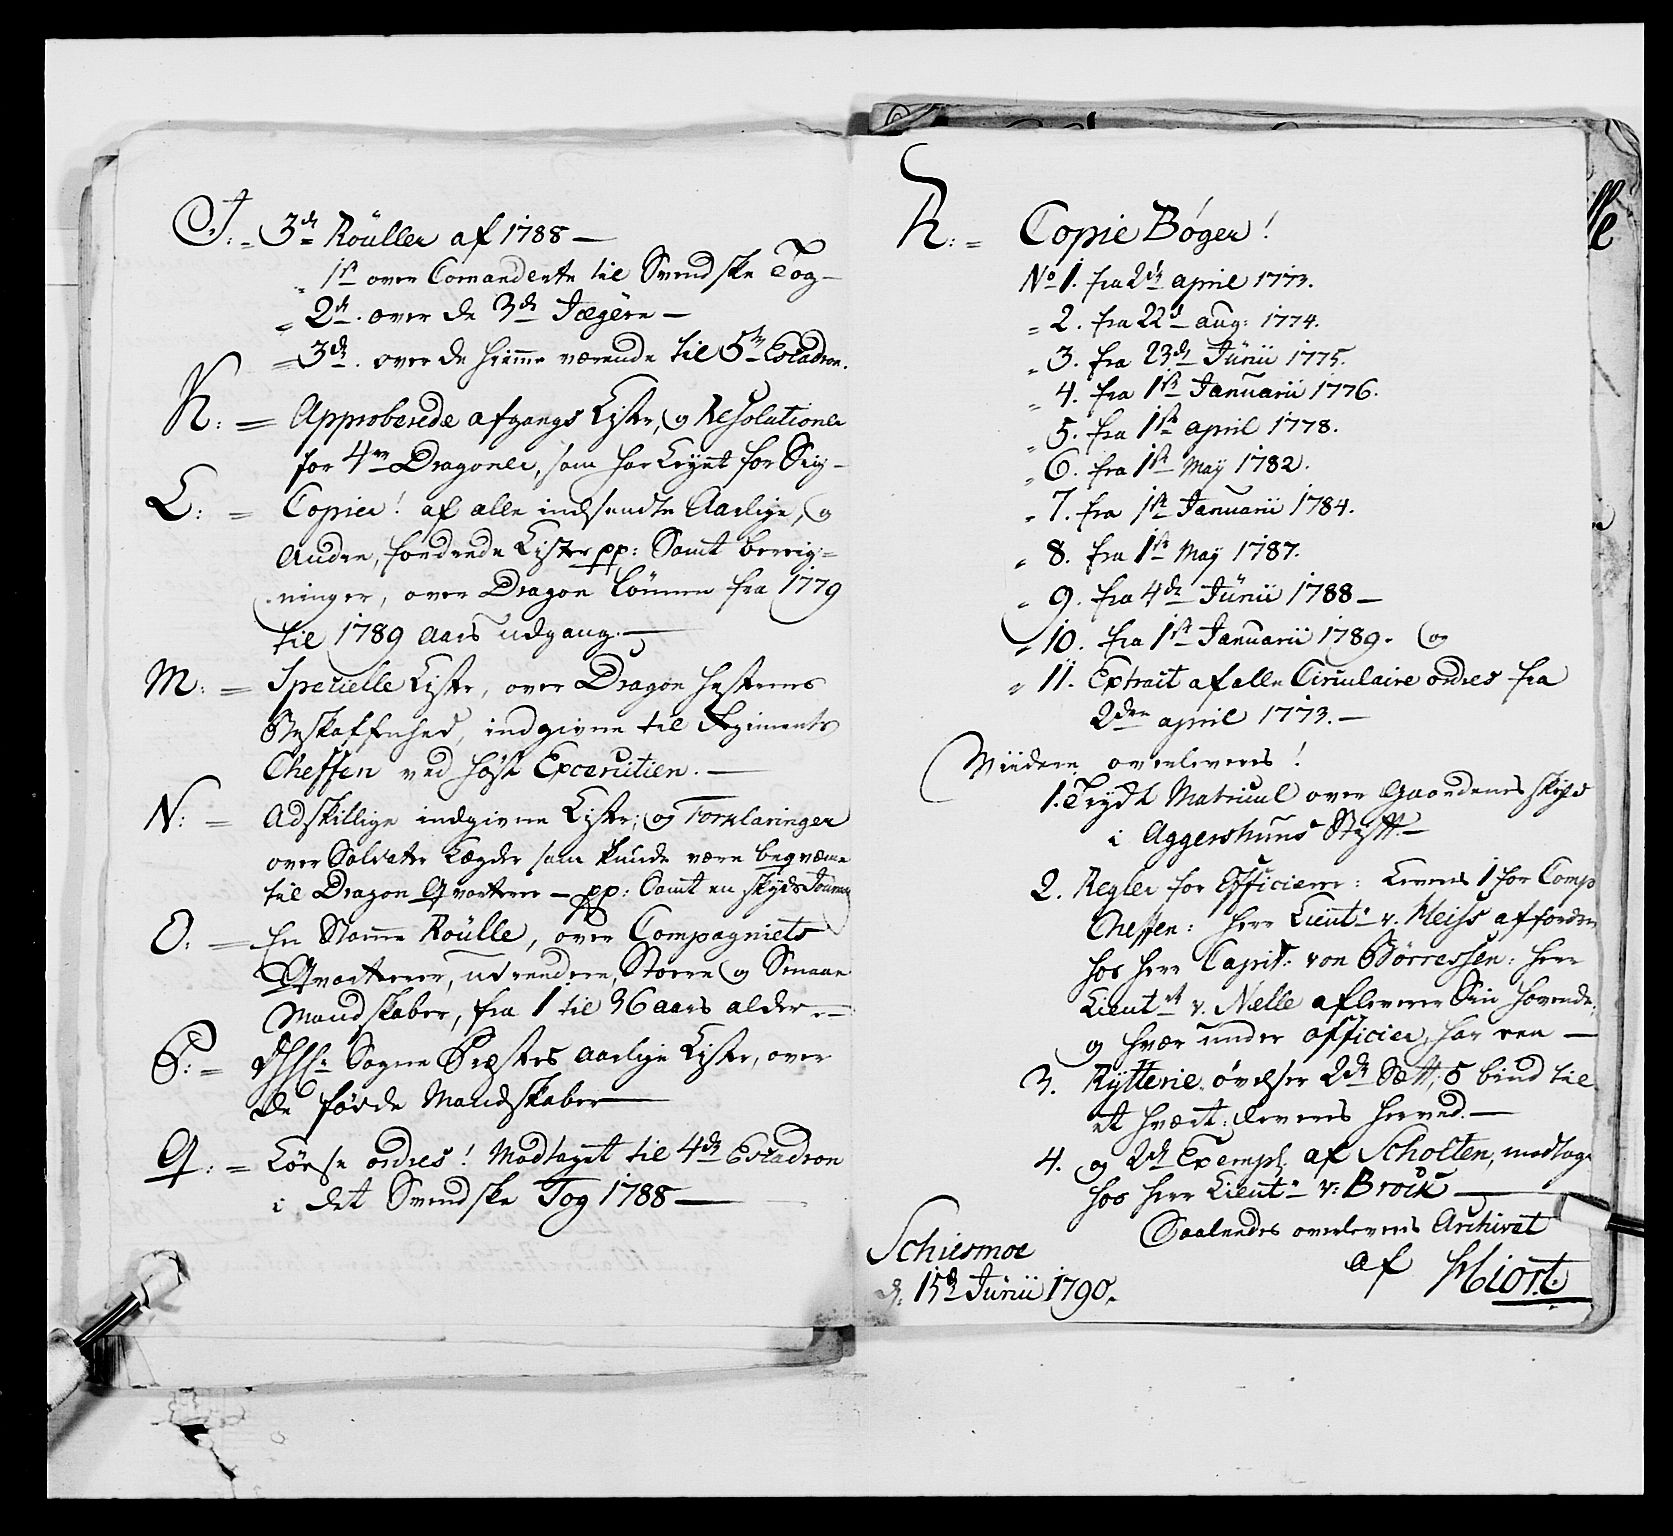 J. = 3de Röuller af 1788 —
" 1st over Comanderte til Svendske Tog —
" 2de. over de 3de Jægere —
= 3de. over de hiemme værende til 5te Escadron.
K: = Approberede afgangs Lister, og Resolutioner
for 4re Dragoner, som har Lejet for Sig —
L: = Copier! af alle indsendte Aarlige, og
Andre, fordrede Lister pp: Samt bereig=
ninger, over Dragon Lönnen fra 1779
til 1789 Aars udgang. —
M: = Specielle Lister, over Dragon Hesternes
Beskaffenhed, indgivne til Regiments
Cheffen ved høst Excersitien. —
N: = Adskillige indgivne Lister; og Forklaringer
over Soldater Lægder som kunde være beqvæme
til Dragon Qvarterer — pp: Samt en Skyds Journal
O: = En Stamme Röulle, over Compagniets
Qvarterer, udreedere, Store og Smaae
Mandskaber, fra 1 til 36 aars alder. —
P: = Sogne Præsters aarlige Lister, over
de fødde Mandskaber —
Q: = Löese ordres! Modtaget til 4de Escadron
i det Svendske Tog 1788 —
R: = Copie Bøger!
No 1. fra 2de april 1773.
" 2. fra 22d aug: 1774.
" 3. fra 23de Junii 1775.
" 4. fra 1ste Januarii 1776.
" 5. fra 1ste april 1778.
" 6. fra 1ste May 1782.
" 7. fra 1ste Januarii 1784.
" 8. fra 1ste May 1787.
" 9. fra 4de Junii 1788 —
" 10. fra 1ste Januarii 1789. og
" 11. Extrait af alle Circulaire ordres fra
2den april 1773. —
Viidere overleveres!
1. Trygt Matricul over Gaardenes Skyld
i Aggershuus Stift. —
2. Regler for Officierer: Leveres 1 for Comp
Cheffen: Herr Lieut: v. Kleiss affordrer
hos Herr Capit: von Börressen: Herr
Lieutnt v. Nelle afleverer Sin Havende,
og hvær under officier, har een —
3. Rytterie øvelser 2de Sett, 5 bind til
et hvært: Leveres herved. —
4. og 2de Exempl. af Scholten, modtag
hos Herr Lieut: v: Brock —
Saaledes overleveres Archivet
af Hiort.
Schiesmoe
d: 15de Junii 1790.